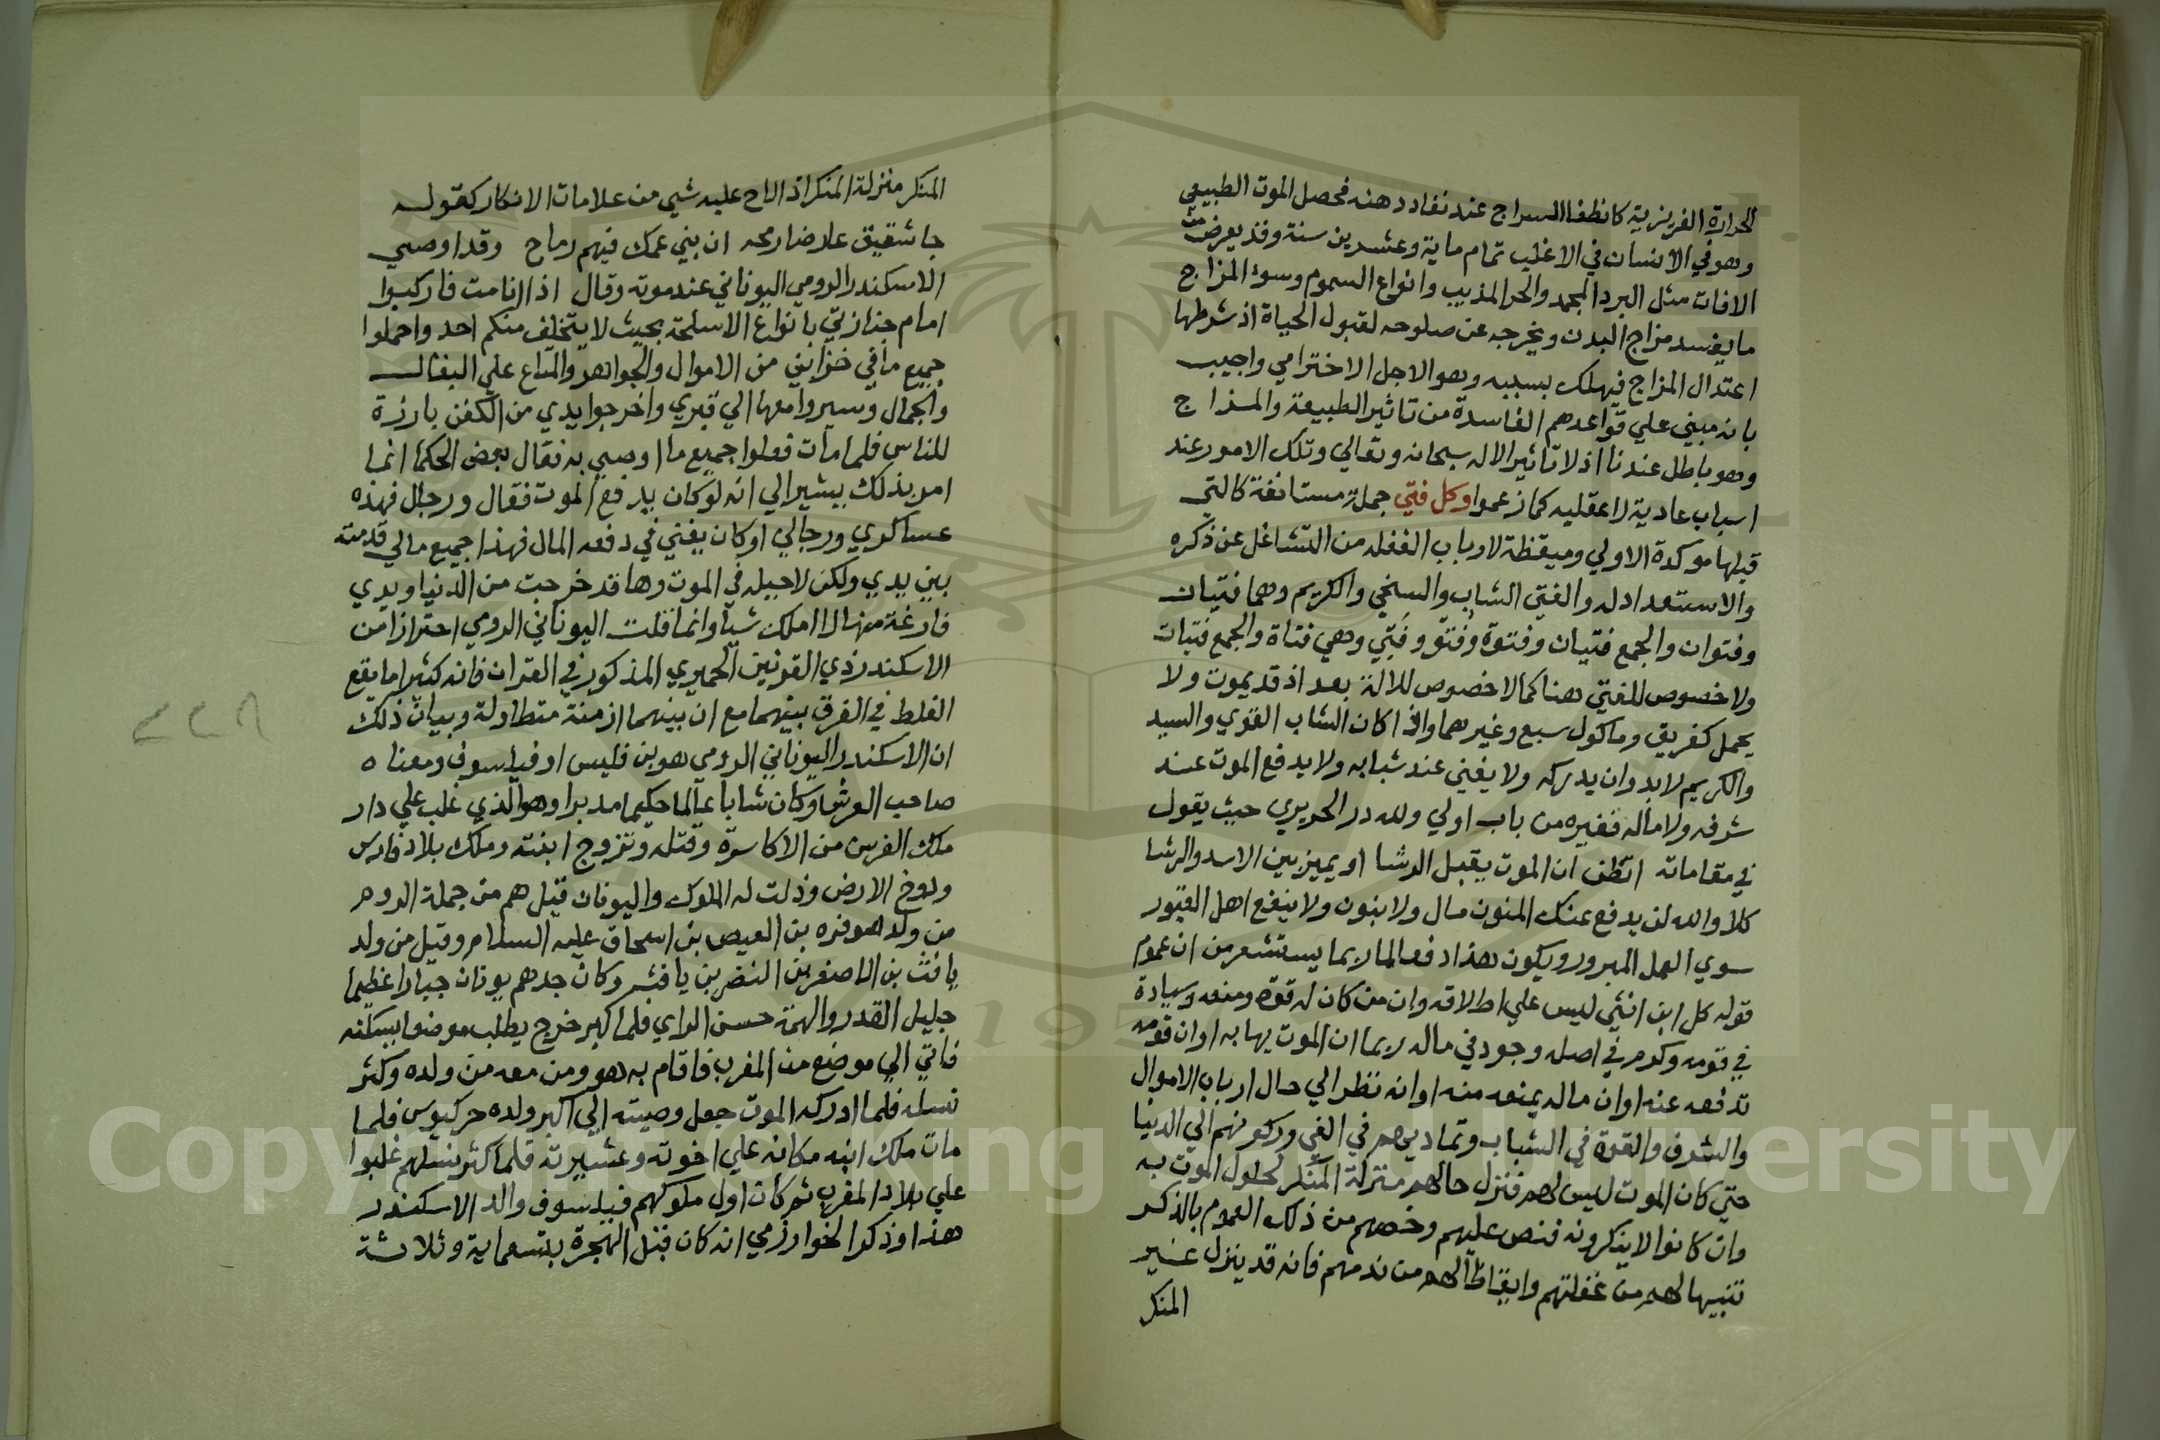 الحرارة الغريزية كانطفا السراج عند نفاد دهنه فحصل الموت الطبيعي
وهو في الانسان في الاغلب تمام ماية وعشرين سنة وقد يعرض من
الافات مثل البرد المجمد والحر المذيب وانواع السموم وسوء المزاج
ما يفسد مزاج البدن ويخرجه عن صلوحه لقبول الحياة اذ شرطها
اعتدال المزاج فيهلك بسببه وهو الاجل الاخترامي واجيب
بانه مبني علي قواعدهم الفاسدة من تاثير الطبيعة والمزاج
وهو باطل عندنا اذ لا تاثير الا له سبحانه وتعالي وتلك الامور عند
اسباب عادية لا عقليه كما زعموا وكل فتي جملة مستانفة كالتي
قبلها موكدة الاولي وميقظة لارباب الغفله من التشاغل عن ذكره
والاستعداد له والفتي الشاب والسخي والكريم وهما فتيان
وفتوان والجمع فتيان وفتوة وفتو وفتي وهي فتاة والجمع فتيات
ولا خصوص للفتي هنا كما لا خصوص للالة بعد اذ قد يموت ولا
يحمل كغريق وماكول سبع وغيرهما واذا كان الشاب القوي والسيد
والكريم لا بد وان يدركه ولا يغني عنه شبابه ولا يدفع الموت عنه
شرفه ولا ماله فغيره من باب اولي ولله در الحريري حيث يقول
في مقاماته اتظن ان الموت يقبل الرشا او يميز بين الاسد والرشا
كلا والله لن يدفع عنك المنون مال ولا بنون ولا ينفع اهل القبور
سوي العمل المبرور ويكون هذا دفعا لما ربما يستشعر من ان عموم
قوله كل ابن انثي ليس علي اطلاقه وان من كان له قوة ومنعه وسيادة
في قومه وكرم في اصله وجود في ماله ربما ان الموت يهابه او ان قومه
تدفعه عنه او ان ماله يمنعه منه او انه نظر الي حال ارباب الاموال
والشرف والقوة في الشباب وتماديهم في الغي وركونهم الي الدنيا
حتي كان الموت ليس لهم فنزل حالهم منزلة المنكر لحلول الموت به
وان كانوا لا ينكرونه فنص عليهم وخصهم من ذلك العموم بالذكر
تنبيها لهم من غفلتهم وايقاظا لهم من ندمهم فانه قد ينزل غير
المنكر
المنكر منزلة المنكر اذا لاح عليه شي من علامات الانكار كقوله
جا شقيق عارضا رمحه ان بني عمك فيهم رماح وقد اوصي
الاسكندر الرومي اليوناني عند موته وقال اذا انا مت فاركبوا
امام جنازتي بانواع الاسلحة بحيث لا يتخلف منكم احد واحملوا
جميع ما في خزايني من الاموال والجواهر والمتاع علي البغال
والجمال وسيروا معها الي قبري واخرجوا يدي من الكفن بارزة
للناس فلما مات فعلوا جميع ما اوصي به فقال بعض الحكما انما
امر بذلك يشير الي انه لو كان يدفع الموت فقال ورجال فهذه
عساكري ورجالي او كان يغني في دفعه المال فهذا جميع مالي قدمته
بين يدي ولكن لا حيله في الموت وها قد خرجت من الدنيا ويدي
فارغة منها لا املك شيا وانما قلت اليوناني الرومي احترازا من
الاسكندر ذي القرنين الحميري المذكور في القران فانه كثيرا ما يقع
الغلط في الفرق بينهما مع ان بينهما ازمنة متطاولة وبيان ذلك
ان الاسكندر اليوناني الرومي هو بن فليس او فيلسوف ومعناه
صاحب العرش وكان شابا عالما حكيما مدبرا وهو الذي غلب علي دار
ملك الفرس من الاكاسرة وقتله وتزوج ابنته وملك بلاد فارس
ودوخ الارض وذلت له الملوك واليونان قيل هم من جملة الروم
من ولد هوفره بن العيص بن اسحاق عليه السلام وقيل من ولد
يافث بن الاصفر بن النضر بن يافث وكان جدهم يونان جبارا عظيما
جليل القدر والهمة حسن الراي فلما كبر خرج يطلب موضعا يسكنه
فاتي الي موضع من المغرب فاقام به هو ومن معه من ولده وكثر
نسله فلما ادركه الموت جعل وصيته الي اكبر ولده حركيوس فلما
مات ملك ابنه مكانه علي اخوته وعشيرته فلما كثر نسلهم غلبوا
علي بلاد المغرب ثم كان اول ملوكهم فيلسوف والد الاسكندر
هذا وذكر الخوارزمي انه كان قبل الهجرة بتسعماية وثلاثة
Copyright © King University
195